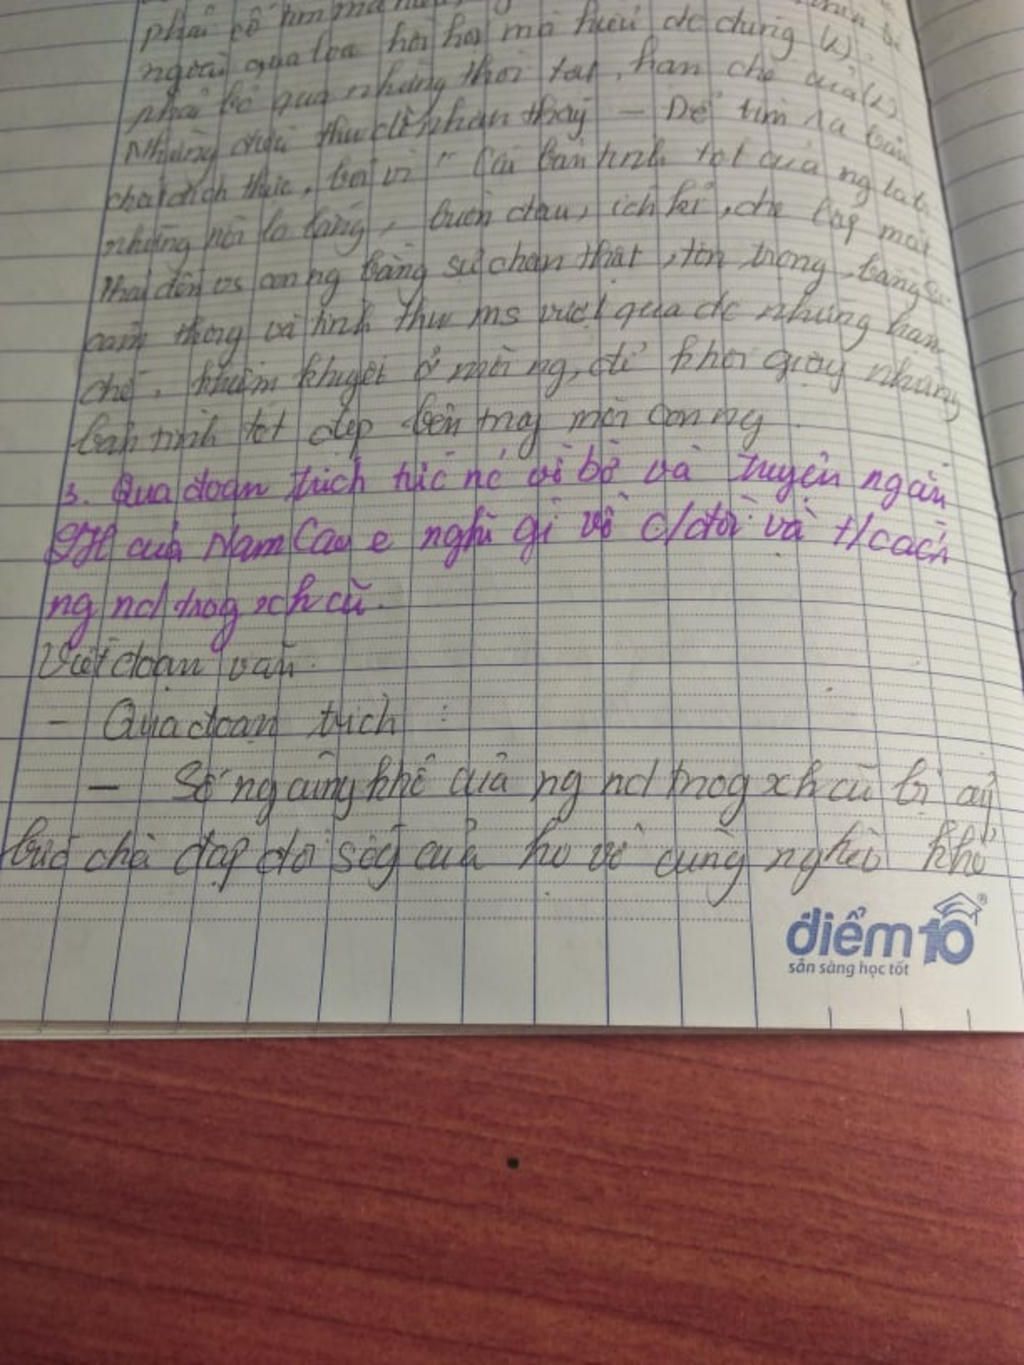 phải cố tìm mà hiểu
ngoài qua loa hời hợt mà hiểu dc chúng (k)
phải bỏ qua những thói tật, hạn chế của (k)
Những điều thứ dễ nhận thấy - Để tìm ra bản
chất đích thực, bởi vì " Cái bản tính tốt của ng ta bị
những nỗi lo lắng, buồn đau, ích kỉ, che lấp mất
thái độ vs con ng bằng sự chân thật, tôn trọng, bằng sự
cảm thông và tình thư ms vượt qua dc những hạn
chế, khiếm khuyết ở mỗi ng, để khơi gợi những
bản tính tốt đẹp bên trong mỗi con ng
3. Qua đoạn trích tức nc vỡ bờ và truyện ngắn
của Nam Cao e nghĩ gì về c/đời và t/cách
ng nd trog xh cũ.
Viết đoạn văn.
- Qua đoạn trích :
- Số ng cùng khổ của ng nd trog xh cũ bị áp
bức chà đạp đời sốg của họ vô cùng nghèo khổ
điểm 10
sẵn sàng học tốt